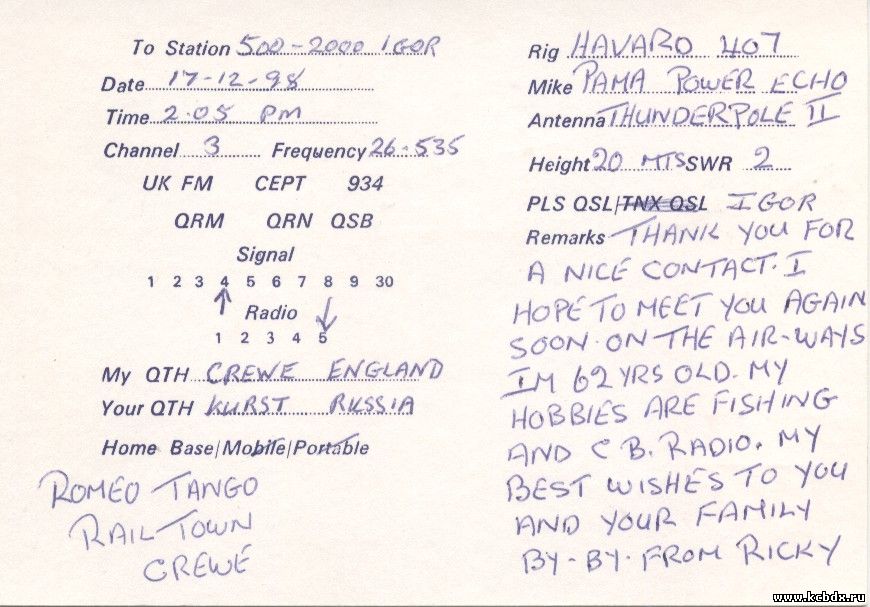 To Station 500-2000 IGOR
Date 17-12-98
Time 2.05 PM
Channel 3 Frequency 26-535
UK FM CEPT 934
QRM QRN QSB
Signal
1 2 3 4 5 6 7 8 9 30
Radio
1 2 3 4 5
My QTH CREWE ENGLAND
Your QTH KURST RUSSIA
Home Base/Mobile/Portable
ROMEO TANGO
RAIL TOWN
CREWE
Rig HAVARO 407
Mike PAMA POWER ECHO
Antenna THUNDERPOLE II
Height 20 MTS SWR 2
PLS QSL/TNX QSL IGOR
Remarks THANK YOU FOR
A NICE CONTACT. I
HOPE TO MEET YOU AGAIN
SOON. ON THE AIR-WAYS
IM 62 YRS OLD. MY
HOBBIES ARE FISHING
AND C B. RADIO. MY
BEST WISHES TO YOU
AND YOUR FAMILY
BY-BY. FROM RICKY
www.kcbdx.ru